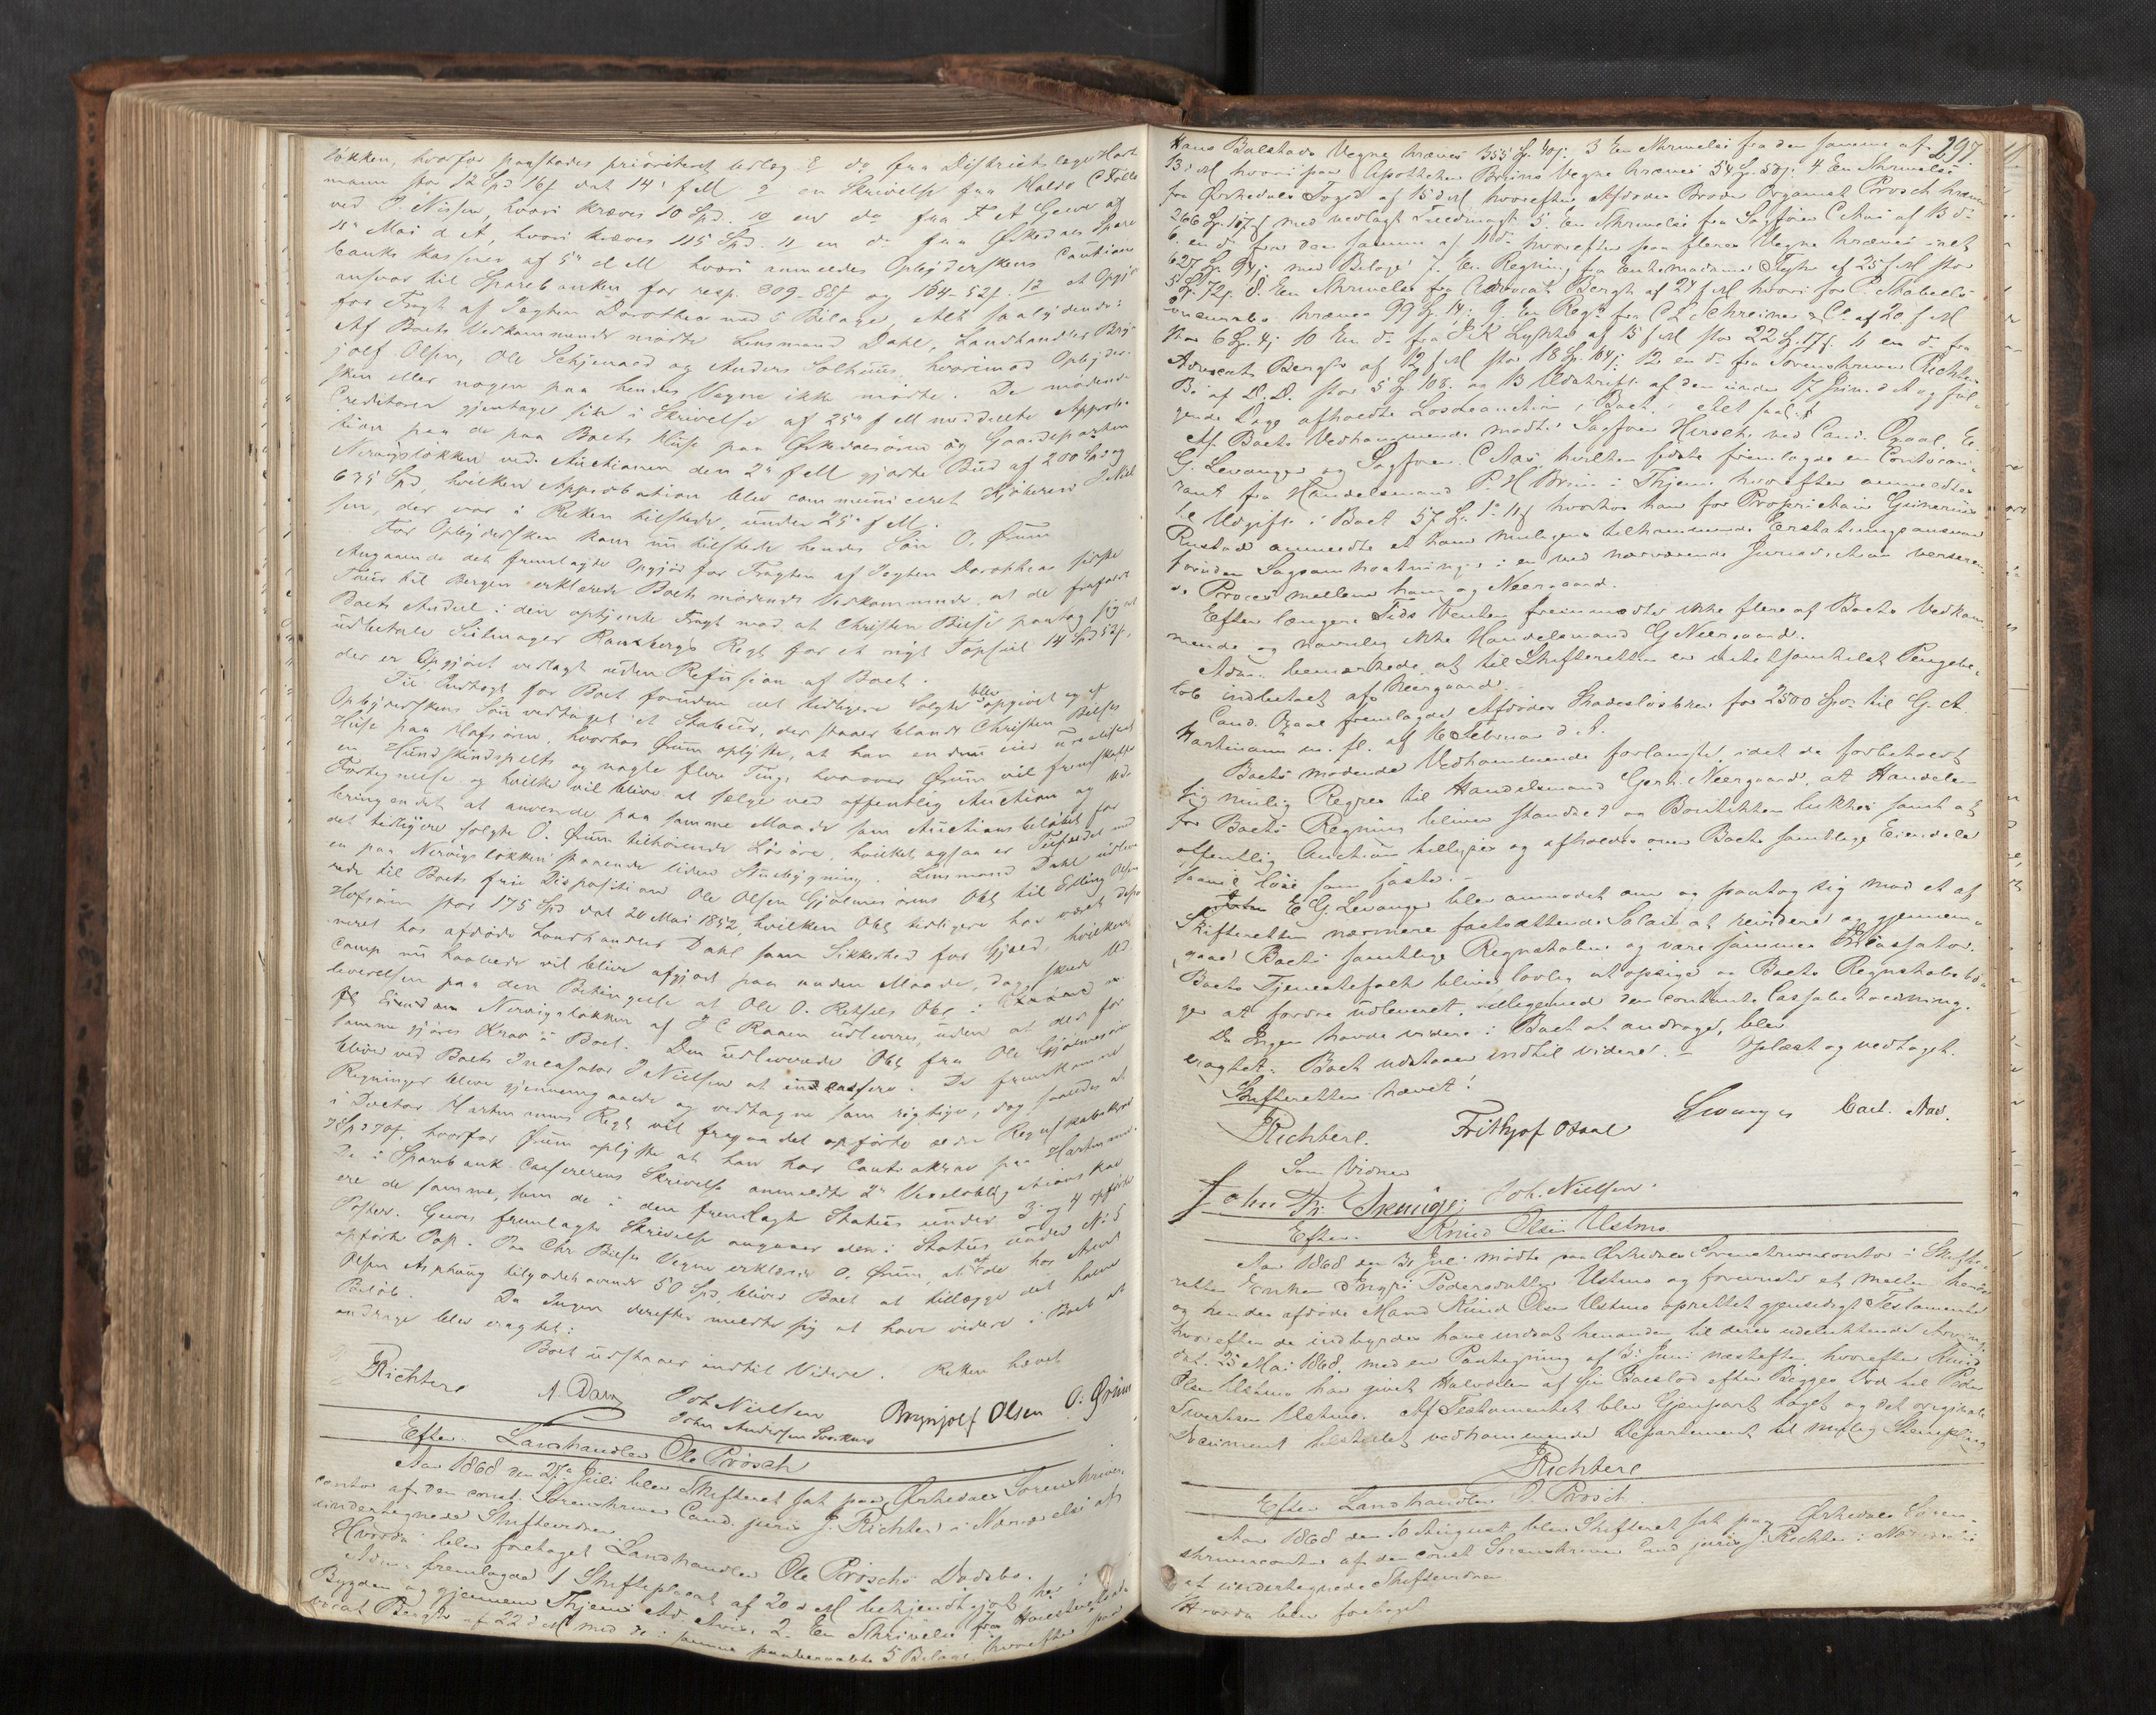 løkken, hvorfor paastodes prioriteret Udlæg 8 do fra Districtslæge Hart
mann stor 12 Spd 16 s dat 14 f M 9 en Skrivelse fra
ved P. Nissen, hvori kræves 10 Spd. 10 en do fra
11 Mai d A, hvori kræves 115 Spd. 11 en do fra Ørkedals Spare
banks Kasserer af 5 d M hvori anmeldes Opbyderskens Cautions
ansvar til Sparebanken for resp. 309-88 s og 164-52 s. 12 et Opgjør
for Fragt af Jægten Dorothea med 5 Bilage, Alt saalydende:
Af Boets Vedkommende mødte Lensmand Dahl, Landhandler Bryn
jolf Olsen, Ole Schjenaad og Anders Solhuus, hvorimod Opbyder
sken eller nogen paa hendes Vegne ikke mødte. De mødende
Creditorer gjentager sin i Skrivelse af 25 f M meddeelte Approba
tion paa de paa Boets Huse paa Ørkedalsøren og Gaardeparten
Nervigsløkken ved Auctionen den 2 f M gjorte Bud af 200 Spd og
635 Spd, hvilken Approbation blev communiceret Kjøberen J Niel
sen, der var i Retten tilstede, under 25 f M.
For Opbydersken kom nu tilstede hendes Søn O. Ørum
Angaaende det fremlagte Opgjør for Fragten af Jægten Dorothea sidste
Tour til Bergen erklærede Boets mødende Vedkommende, at de frafaldt
Boets Andeel i den optjente Fragt mod at Christen Bielse paatog sig at
udbetale Seilmager Randbergs Regg for et nyt Topseil 14 Spd 52 s,
der er Opgjøret vedlagt uden Refusion af Boet.
Til Indtægt for Boet foruden det tidligere Solgte blev opgivet og af
Opbyderskens Søn vedtaget et Stabuur, der staaer blandt Christen Bielses
Huse paa Hofsøren, hvorhos Ørum oplyste, at han endnu
en Hundskindspelts og nogle flere Ting, hvorover Ørum vil fremskaffe
Fortegnelse og hvilke vil blive at sælge ved offentlig Auction og
at anvende paa samme Maade som Auctionsbeløbet for
det tidligere solgte O. Ørum tilhørende Løsøre, hvilket ogsaa er Tilfældet med
en paa Nervigsløkken staaende liden Nybygning. Lensmand Dahl udleve
rede til Boets frie Disposition Ole Olsen Gjølmesørens Obl til Elling Olsen
Hofsøren stor 175 Spd dat 20 Mai 1852, hvilken Obl tidligere har været depo
neret hos afdøde Landhandler Dahl som Sikkerhed for Gjæld, hvilken
Comp nu haabede vil blive afgjort paa anden Maade, dog skede Ud
leverelsen paa den Betingelse at Ole O. Rekstels Obl i
Eiendom Nervigsløkken af J C Raaen udleveres, uden at der for
samme gjøres Krav i Boet. Den udleverede Obl fra Ole Gjølmesøren
bliver ved Boets Incassator J Nielsen at indcassere. De fremkomne
Regninger bleve gjennemgaaede og vedtagne som rigtige, dog saaledes at
i Doctor Hartmanns Regg vil fragaa det opførte
7 Spd 70 s, hvorfor Ørum oplyste at han har Contrakrav paa Hartmann.
De i Sparebank Cassererens Skrivelse anmeldte 2
ere de samme, som de i den fremlagte Status under 3 og 4 opførte
Poster. fremlagte Skrivelse angaaer den i Status under No 5
opførte Post. Paa Chr Bielses Vegne erklærede O. Ørum, at af de hos Arnt
Olsen Asphaug tilgodehavende 50 Spd bliver Boet at tillægge det halve
Beløb. Da Ingen derefter meldte sig at have videre i Boet at
andrage blev eragtet:
Boet udstaaer indtil Videre. Retten hævet
Richter A. Dahl Joh Nielsen Brynjolf Olsen O. Ørum
John Andersen
Efter Landhandler Ole Prösch
Aar 1868 den 27 Juli blev Skifteret sat paa Ørkedals Sorenskriver
contor af den const. Sorenskriver Cand. juris J. Richter i Nærværelse af
undertegnede Skiftevidner.
Hvorda blev foretaget Landhandler Ole Prösch's Dødsbo.
Adm. fremlagde 1 Skifteplacat af 20 d M bekjendtgjort her i
Bygden og gjennem Thjems Ad. Avis. 2. En Skrivelse fra Høiesteretsad
vocat Bergh af 22 d M med de i samme paaberaabte 5 Bilage, hvorefter paa
297.
Hans Balstads Vegne kræves 355 Sp. 40 s. 3 En Skrivelse fra den samme af
13 d M hvori paa Apotheker Bruuns Vegne kræves 54 Sp. 50 s. 4 En Skrivelse
fra Ørkedals Foged af 15 d M, hvorefter Afdødes Broder Organist Prösch kræver
266 Sp. 107 s med vedlagt Fuldmagt 5. En Skrivelse fra Sagfører C Aas af 13 do
6. en do fra den samme af 11 do hvorefter paa fleres Vegne kræves ialt
627 Sp. 94 s med Bilage. 7. En Regning fra Enkemadame af 25 f M stor
5 Sp. 72 s. 8. En Skrivelse fra Advocat Bergh af 24 f M hvori for
kræves 99 Sp. 14 s. 9. En Regg fra C L Schreiner & Co. af 20 f M
stor 6 Sp. 4 s 10 En do fra J K Lykke af 15 f M stor 22 Sp. 17 s. 11 en do fra
Advocat Bergh af 12 f M stor 18 Sp. 104 s. 12 en do fra Sorenskriver Richter
af D. D. stor 5 Sp. 108. og 13 Udskrift af den under 17 Juni d A og føl-
gende Dage afholdte Løsøreauction i Boet. Alt saal.
Af Boets Vedkommende mødte Sagfører Hirsch ved Cand. Osaal, E.
G. Levanger og Sagfører C Aas hvilken sidste fremlagde en Contocou-
rant fra Handelsmand P. H Bruun i Thjem hvorefter anmeldtes
til Udgift i Boet 57 Sp. 1 11 s hvorhos han for Proprietair Gunerius
Rustad anmeldte et ham muligens tilkommende Erstatningsansvar
foruden Sagsomkostninger i en ved nærværende Jurisdiction verseren-
de Proces mellem ham og Neergaard.
Efter længere Tids Venten fremmødte ikke flere af Boets Vedkom-
mende og navnlig ikke Handelsmand G Neergaard.
Adm. bemærkede at til Skifteretten er intetsomhelst Pengebe-
løb indbetalt af Neergaard.
Cand. Osaal fremlagde Afdødes Skadesløsbrev for 2500 Spd. til G. A.
Hartmann m. fl. af 16 Februar d. A.
Boets mødende Vedkommende forlangte, idet de forbeholdt
sig mulig Regres til Handelsmand Gerh. Neergaard, at Handelen
for Boets Regning bliver standset og Boutikken lukket samt at
offentlig Auction tillyses og afholdes over Boets samtlige Eiendele
saavel løse som faste.
E G. Levanger blev anmodet om og paatog sig mod et af
Skifteretten nærmere fastsættende Salair at revidere og gjennem-
gaae Boets samtlige Regnskaber og være sammes Incassator.
Boets Tjenestefolk bliver lovlig at opsige og Boets Regnskabsbø-
ger at fordre udleveret, tilligemed den contante Cassabeholdning.
Da Ingen havde videre i Boet at andrage, blev
eragtet. Boet udstaaer indtil videre. – Oplæst og vedtaget.
Skifteretten hævet!
Richter. Frithjof Osaal Levanger Carl. Aas.
Som Vidner
John Th. Joh. Nielsen.
Efter Knud Olsen Ustmo
Aar 1868 den 31 Juli mødte paa Ørkedals Sorenskrivercontor i Skifte-
retten Enken Ingri Pedersdatter Ustmo og foreviste et mellem hende
og hendes afdøde Mand Knud Olsen Ustmo oprettet gjensidigt Testamente
hvorefter de indbyrdes have indsat hinanden til deres udelukkende Arving
dat. 25 Mai 1868, med en Paategning af 3 Juni næstefter, hvorefter Knud
Olsen Ustmo har givet Halvdelen af sin Boeslod efter Begges Død til Peder
Sivertsen Ustmo. Af Testamentet blev Gjenpart taget og det originale
Document tilstillet vedkommende Departement til mulig Stempling
Richter
Efter Landhandler O. Prösch.
Aar 1868 den 10 August blev Skifteret sat paa Ørkedals Soren-
skrivercontor af den const Sorenskriver Cand juris J. Richter i Nærværelse
af undertegnede Skiftevidner
Hvorda blev foretaget